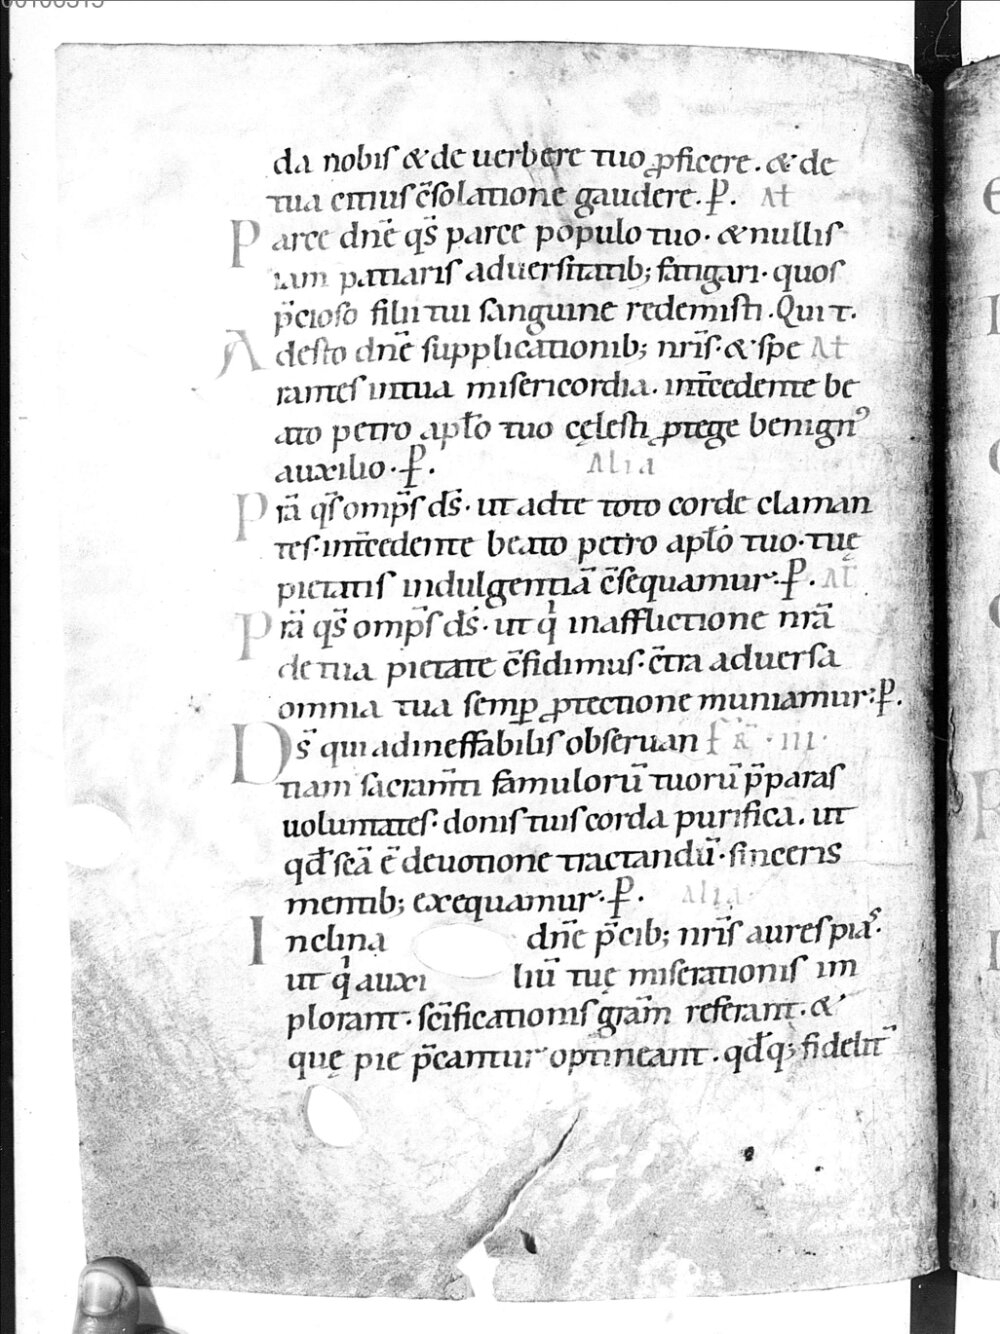 da nobis & de uerbere tuo ꝓficere. & de
tua citius c̄solatione gaudere. P̱. Al̄
Parce dn̄e qs̄ parce populo tuo. & nullis
iam patiaris aduersitatib; fatigari. quos
p̄cioso filii tui sanguine redemisti. Qui t.
Adesto dn̄e supplicationib; nr̄is. & spe Al̄
rantes in tua misericordia. int̄cedente be
ato petro apło tuo cęlesti ꝓtege benignꝰ
auxilio. P̱. Alia
Pr̄a qs̄ omp̄s ds̄. ut ad te toto corde claman
tes. int̄cedente beato petro apło tuo. tuę
pietatis indulgentiā c̄sequamur. P̱. Al̄
Pr̄a qs̄ omp̄s ds̄. ut qͥ in afflictione nr̄a
de tua pietate c̄fidimus. c̄tra aduersa
omnia tua semꝑ ꝓtectione muniamur. P̱.
Ds̄ qui ad ineffabilis obseruan fr̄ . iii.
tiam sacram̄ti famulorū tuorū p̄paras
uoluntates. donis tuis corda purifica. ut
qđ scā ē deuotione tractandū. sinceris
mentib; exequamur. P̱. alia
Inclina dn̄e p̄cib; nr̄is aures pias.
ut qͥ auxiliū tuę miserationis im
plorant. sc̄ificationis gr̄am referant. &
quę pie p̄cantur optineant. qđq; fidelit̄